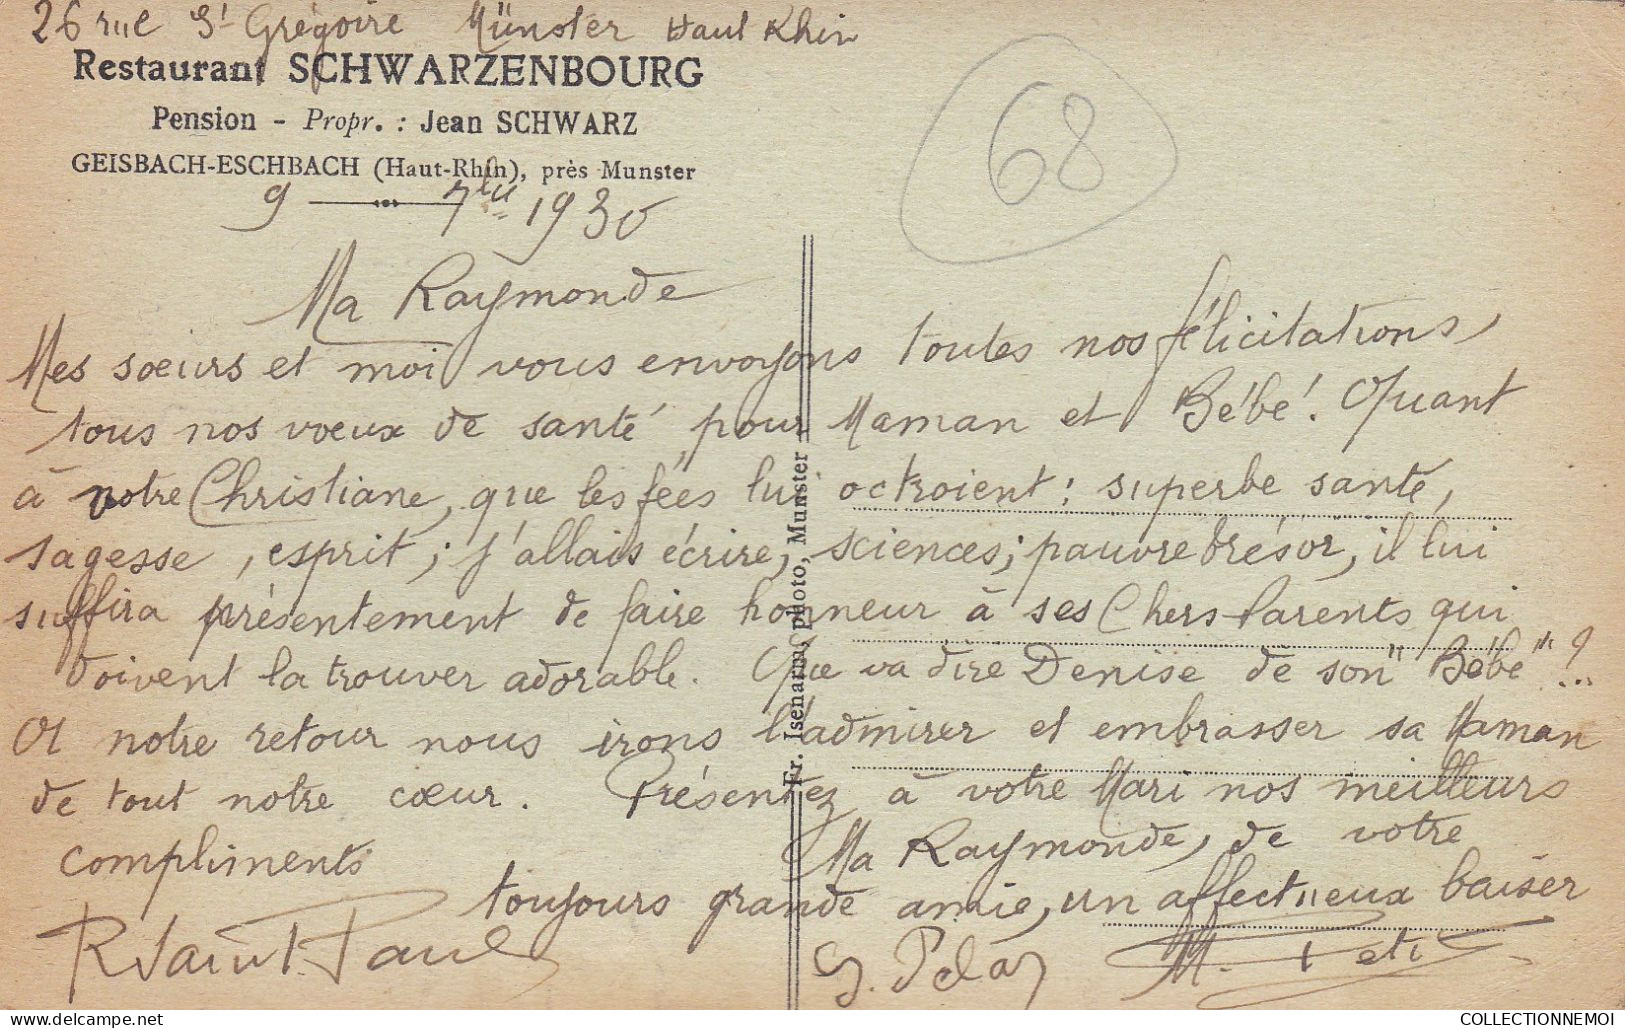 26 rue St Grégoire Münster Haut Rhin
Restaurant SCHWARZENBOURG
Pension - Propr. : Jean SCHWARZ
GEISBACH-ESCHBACH (Haut-Rhin), près Munster
9 7bre 1930
68
Ma Raymonde
Mes soeurs et moi vous envoyons toutes nos félicitations,
tous nos voeux de santé pour Maman et Bébé. Quant
à notre Christiane, que les fées lui octroient : superbe santé,
sagesse, esprit ; j'allais écrire, sciences ; pauvre trésor, il lui
suffira présentement de faire honneur à ses Chers Parents qui
doivent la trouver adorable. Que va dire Denise de son "Bébé" ?...
A notre retour nous irons l'admirer et embrasser sa Maman
de tout notre cœur. Présentez à votre Mari nos meilleurs
compliments
Ma Raymonde, de votre
toujours grande amie, un affectueux baiser
R Saint Paul
M. Petit
Fr. Isenarm, photo, Munster
COLLECTIONNEMOI